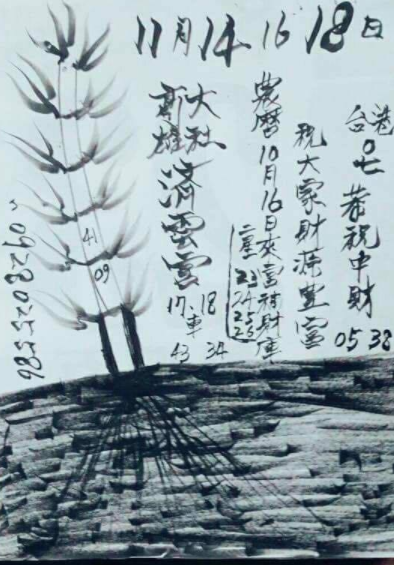 11月14 16 18日
台港
07 恭祝中財
05 38
祝大家財源豐富
農曆10月16日來富神財庫
二星 23
24
25
26
大社
高雄
濟雲宮
17 18
車
43 34
41
09